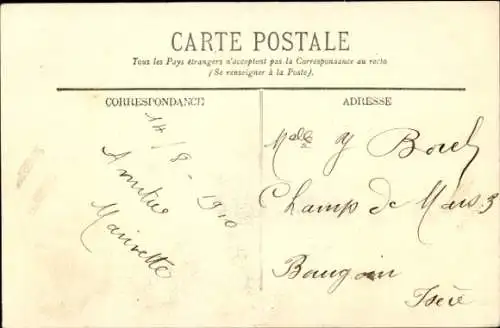 CARTE POSTALE
Tous les Pays étrangers n'acceptent pas la Correspondance au recto
(Se renseigner à la Poste).
CORRESPONDANCE
14/8-1910
Amitiés
ADRESSE
Mlle Y
Champ de Mars 3
Bourgoin
Isère